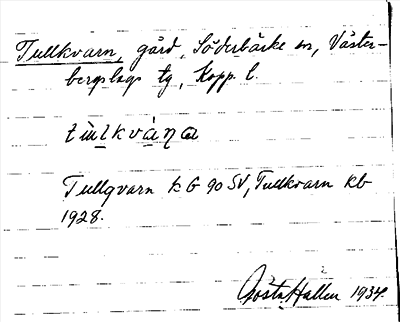 Tullkvarn, gård, Söderbärke sn, Väster-
bergslags tg, Kopp. l.
tùlkvàṇa
Tullqvarn KG 90 SV, Tullkvarn kb
1928.
Gösta Hallen 1934.